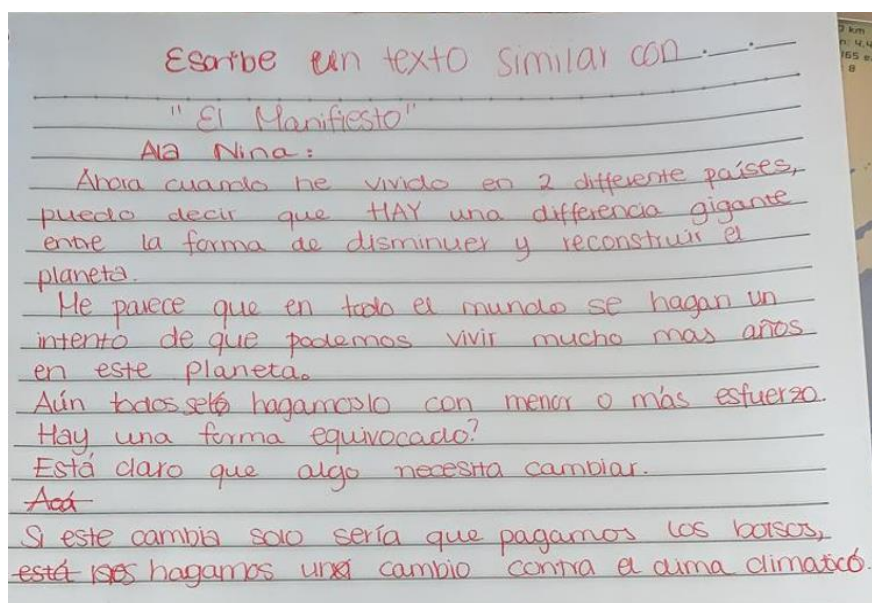 Escribe un texto similar con . __ . __
"El Manifiesto"
Ala Nina:
Ahora cuando he vivido en 2 differente países,
puedo decir que HAY una differencia gigante
entre la forma de disminuer y reconstruir el
planeta.
Me parece que en todo el mundo se hagan un
intento de que podemos vivir mucho mas años
en este planeta.
Aún todos hagamoslo con menor o más esfuerzo.
Hay una forma equivocado?
Está claro que algo necesita cambiar.
Acá
Si este cambia solo sería que pagamos los bolsos,
está hagamos una cambio contra el clima climaticó.